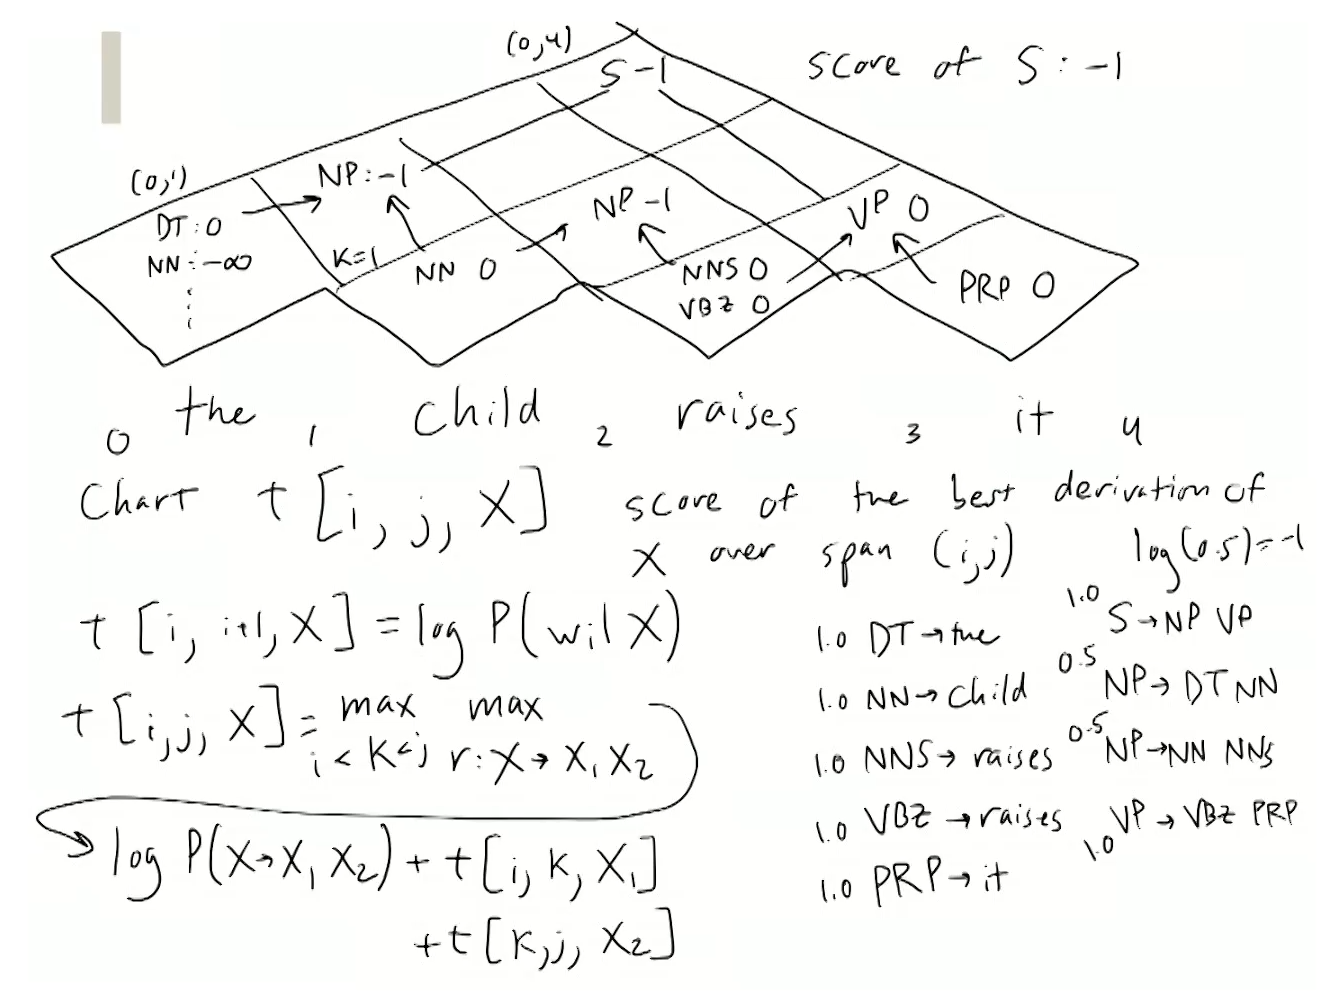 (0,4)
S -1
score of S: -1
(0,1)
NP: -1
DT: 0
NN: -∞
K=1
NN 0
NP -1
NNS 0
VBZ 0
VP 0
PRP 0
0 the 1 child 2 raises 3 it 4
Chart t[i, j, X] score of the best derivation of
X over span (i,j)
log(0.5)=-1
t[i, i+1, X] = log P(wi|X)
t[i,j, X] = max max
i<K<j r: X→X1 X2
log P(X→X1 X2) + t[i, K, X1]
+ t[K, j, X2]
1.0 DT→the
1.0 NN→child
1.0 NNS→raises
1.0 VBZ→raises
1.0 PRP→it
1.0 S→NP VP
0.5 NP→DT NN
0.5 NP→NN NNS
1.0 VP→VBZ PRP